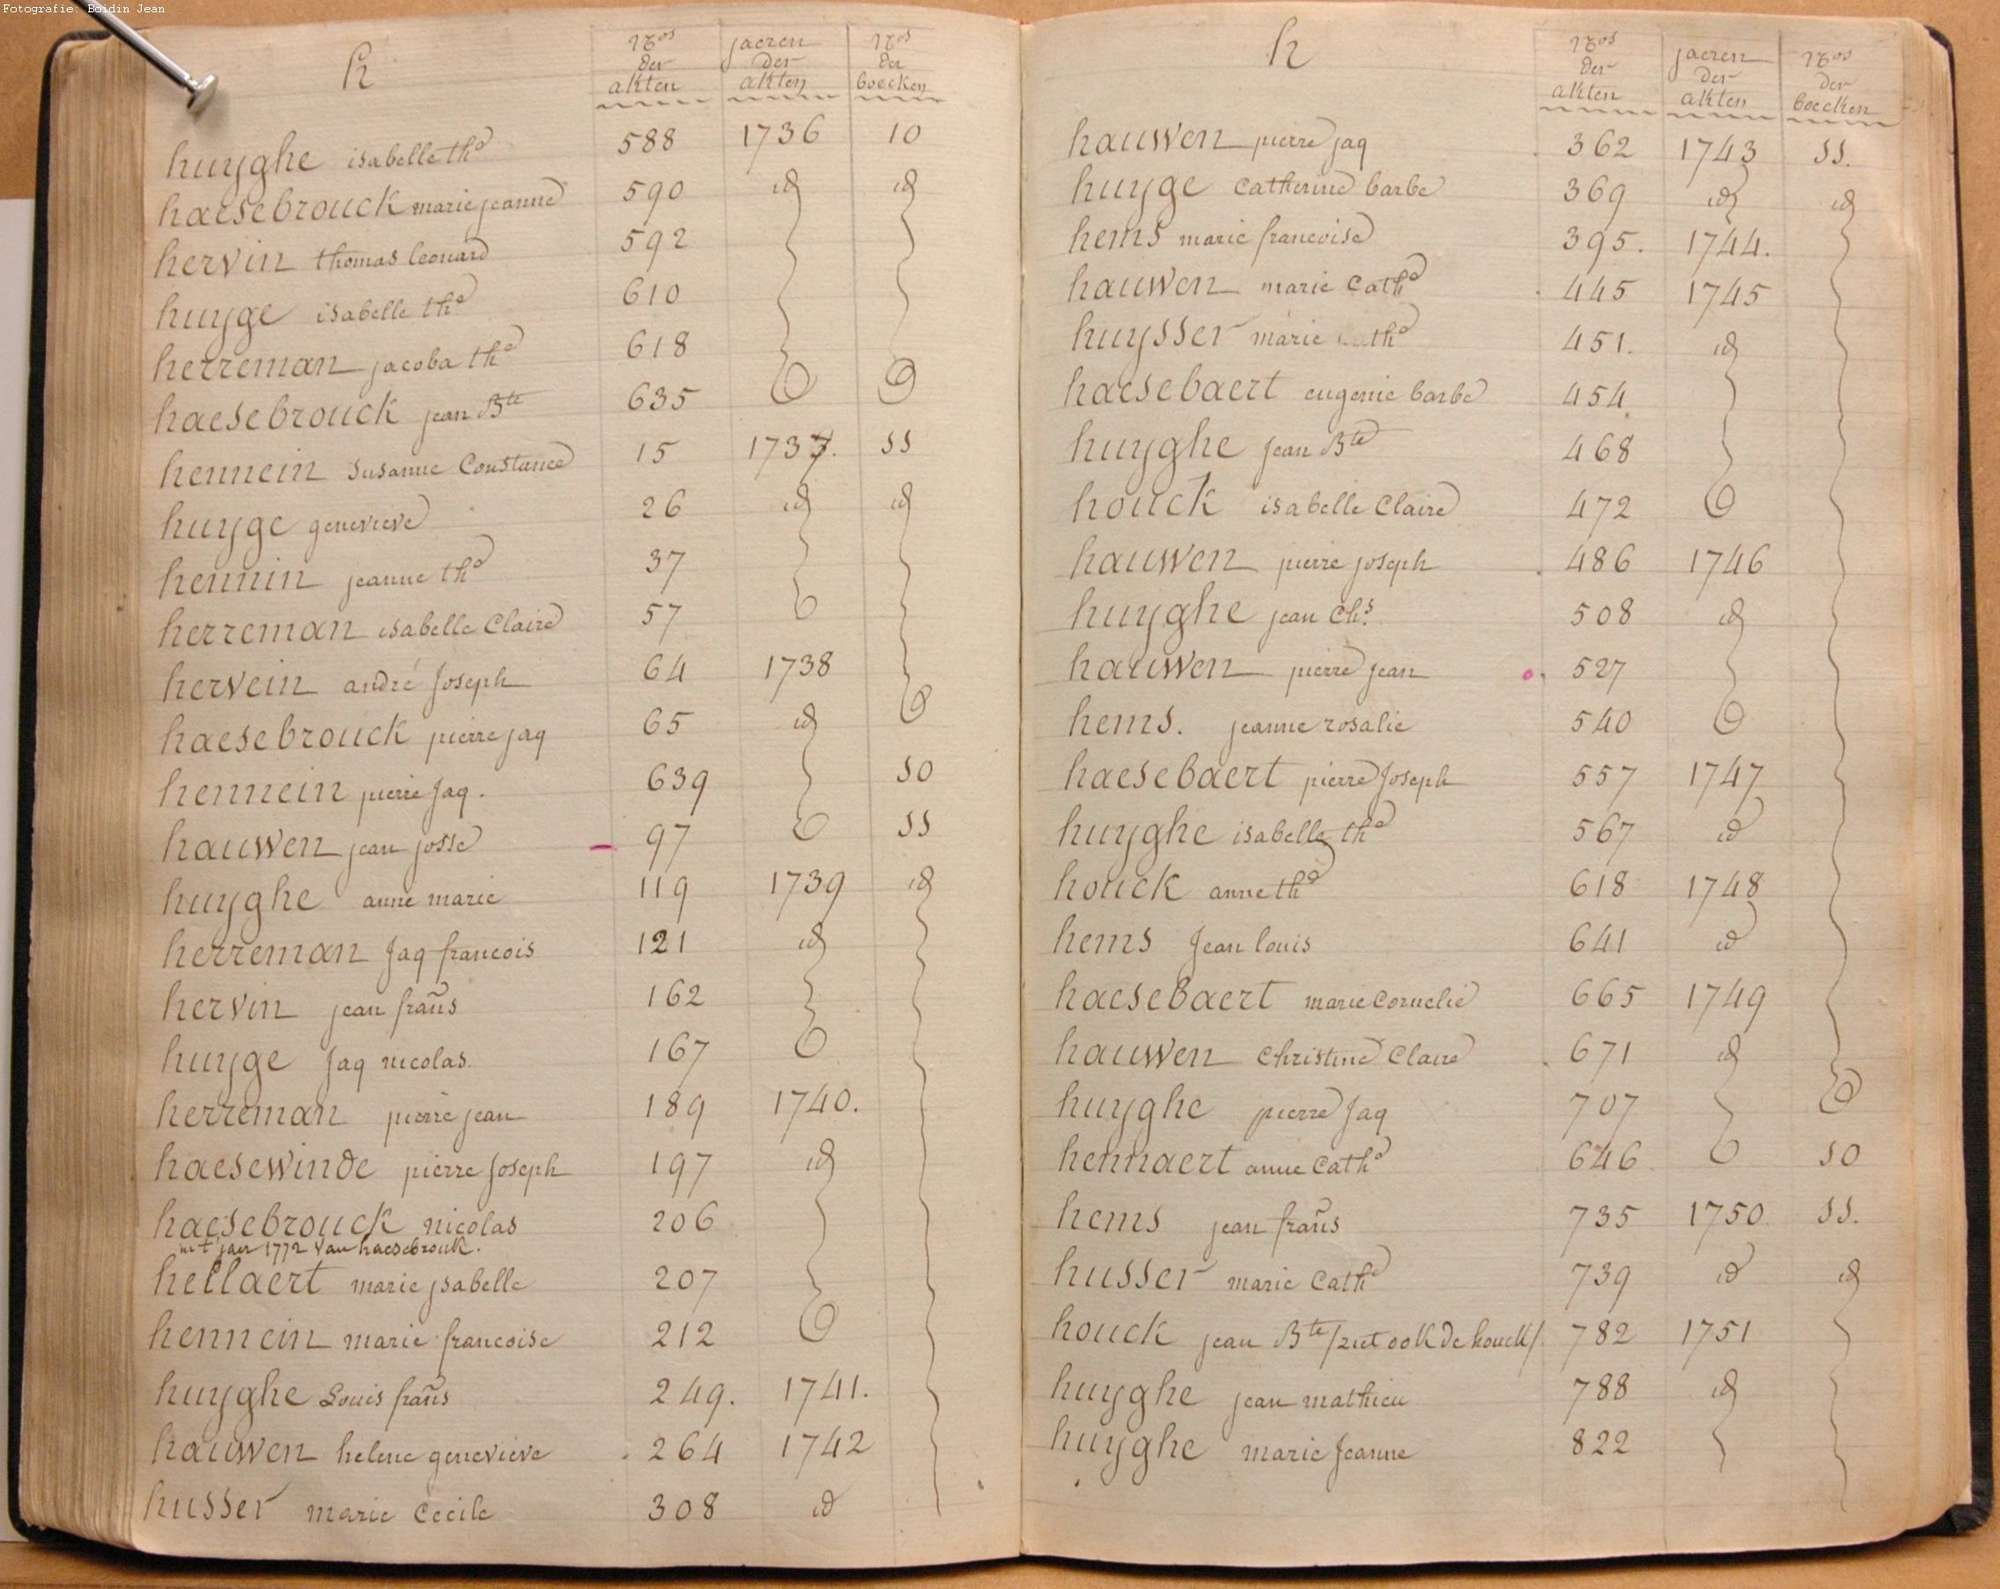 Fotografie: Boidin Jean
h
Nos der akten
jaeren der akten
Nos der boecken
huyghe isabelle the 588 1736 10
haesebrouck marie jeanne 590 id id
hervin thomas leonard 592
huyge isabelle the 610
herreman jacoba the 618
haesebrouck jean Bte 635
hennein susanne Constance 15 1737. 11
huyge genevieve 26 id id
hennin jeanne the 37
herreman isabelle Claire 57
hervein andré Joseph 64 1738
haesebrouck pierre jaq 65 id
hennein pierre Jaq. 639 10
hauwen jean josse 97 11
huyghe anne marie 119 1739 id
herreman Jaq francois 121 id
hervin jean frañs 162
huyge Jaq nicolas. 167
herreman pierre jean 189 1740.
haesewinde pierre Joseph 197 id
haesebrouck nicolas 206
in t jaer 1772 Van haesebrouk.
hellaert marie ysabelle 207
hennein marie francoise 212
huyghe Louis frañs 249. 1741.
hauwen helene genevieve 264 1742
husser marie Cecile 308 id
h
Nos der akten
jaeren der akten
Nos der boecken
hauwen pierre jaq 362 1743 11.
huyge Catherine barbe 369 id id
hems marie francoise 395. 1744.
hauwen marie Cathe 445 1745
huysser marie Cathe 451. id
haesebaert eugenie barbe 454
huyghe jean Bte 468
houck isabelle Claire 472
hauwen pierre joseph 486 1746
huyghe jean Chs. 508 id
hauwen pierre jean 527
hems. jeanne rosalie 540
haesebaert pierre Joseph 557 1747
huyghe isabelle the 567 id
houck anne the 618 1748
hems Jean louis 641 id
haesebaert marie Cornelie 665 1749
hauwen Christine Claire 671 id
huyghe pierre Jaq 707
hennaert anne Cathe 646 10
hems jean frañs 735 1750 11.
husser marie Cathe 739 id id
houck jean Bte /ziet ook de houck/ 782 1751
huyghe jean mathieu 788 id
huyghe marie Jeanne 822